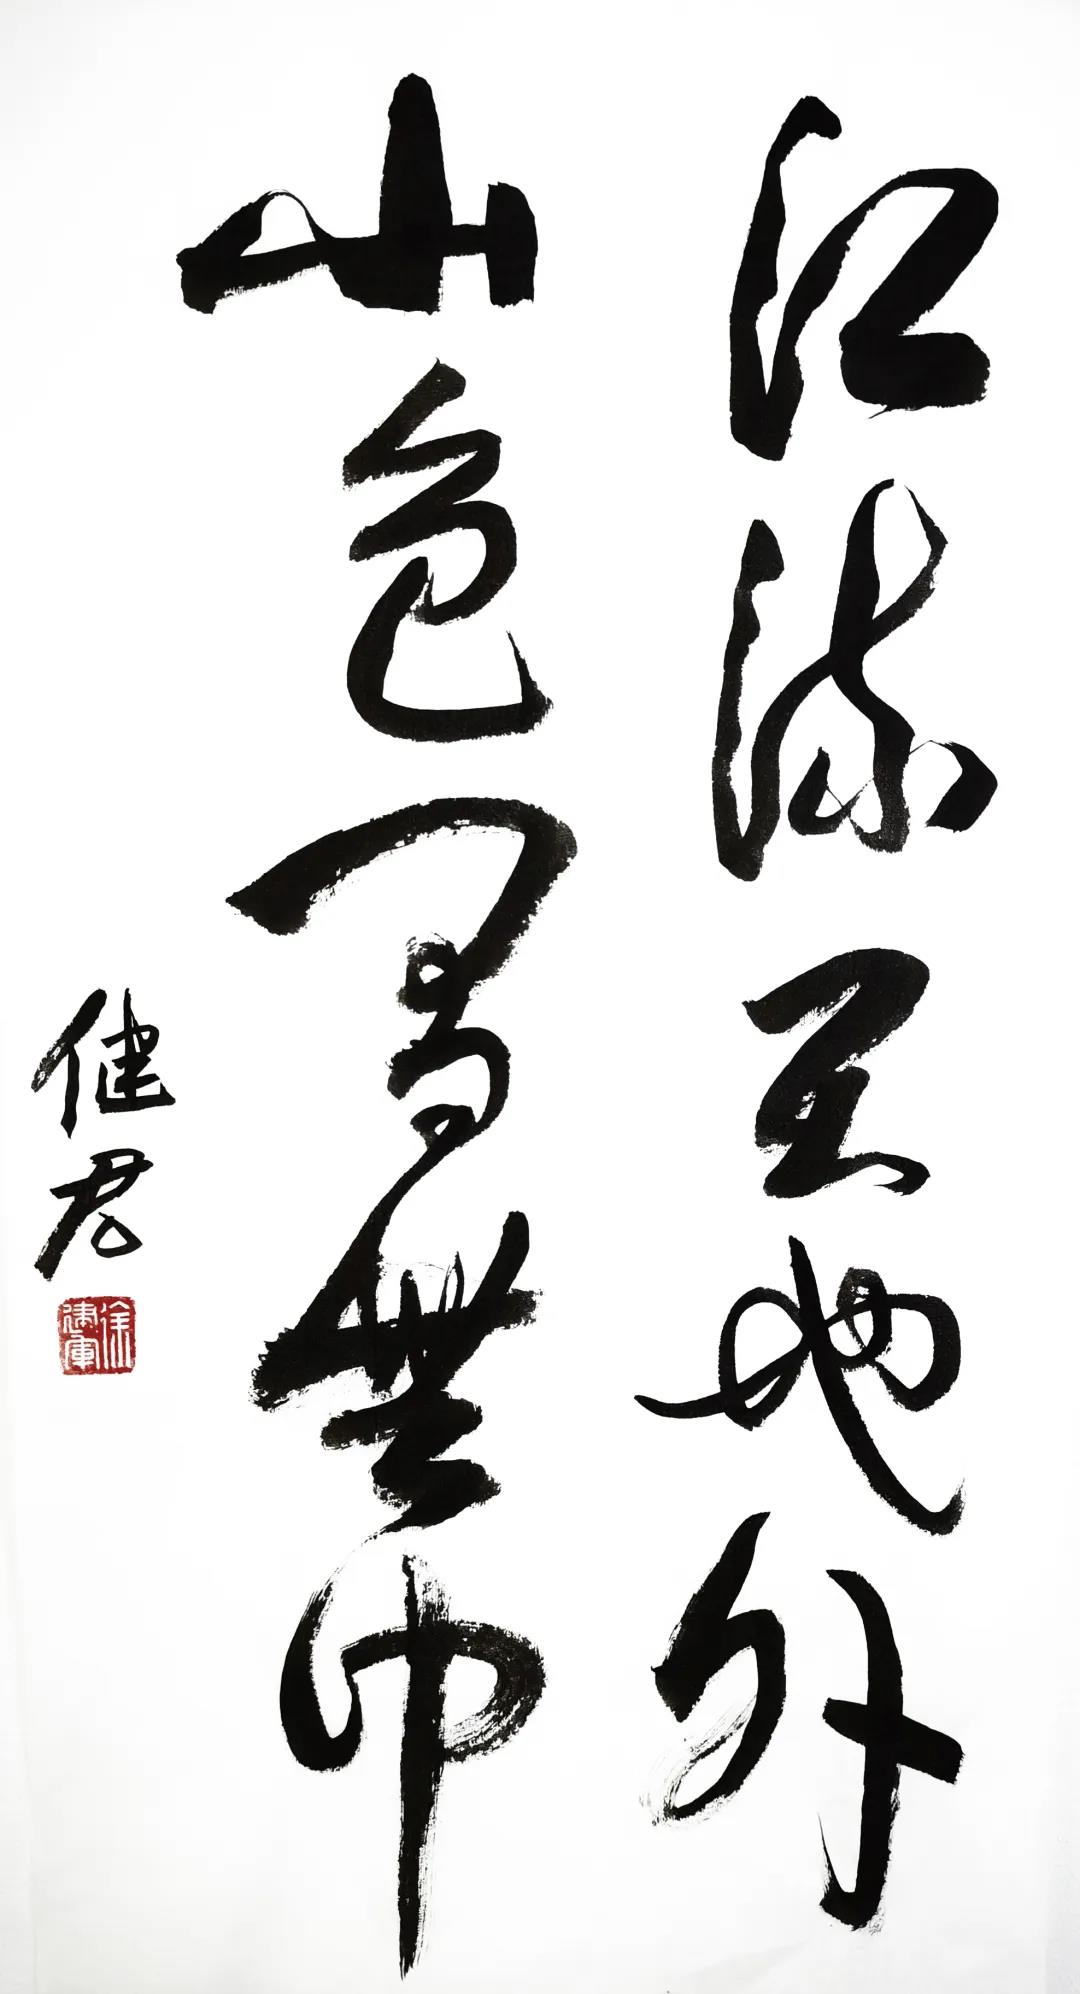 江流天地外
山色有無中
健君
徐建軍